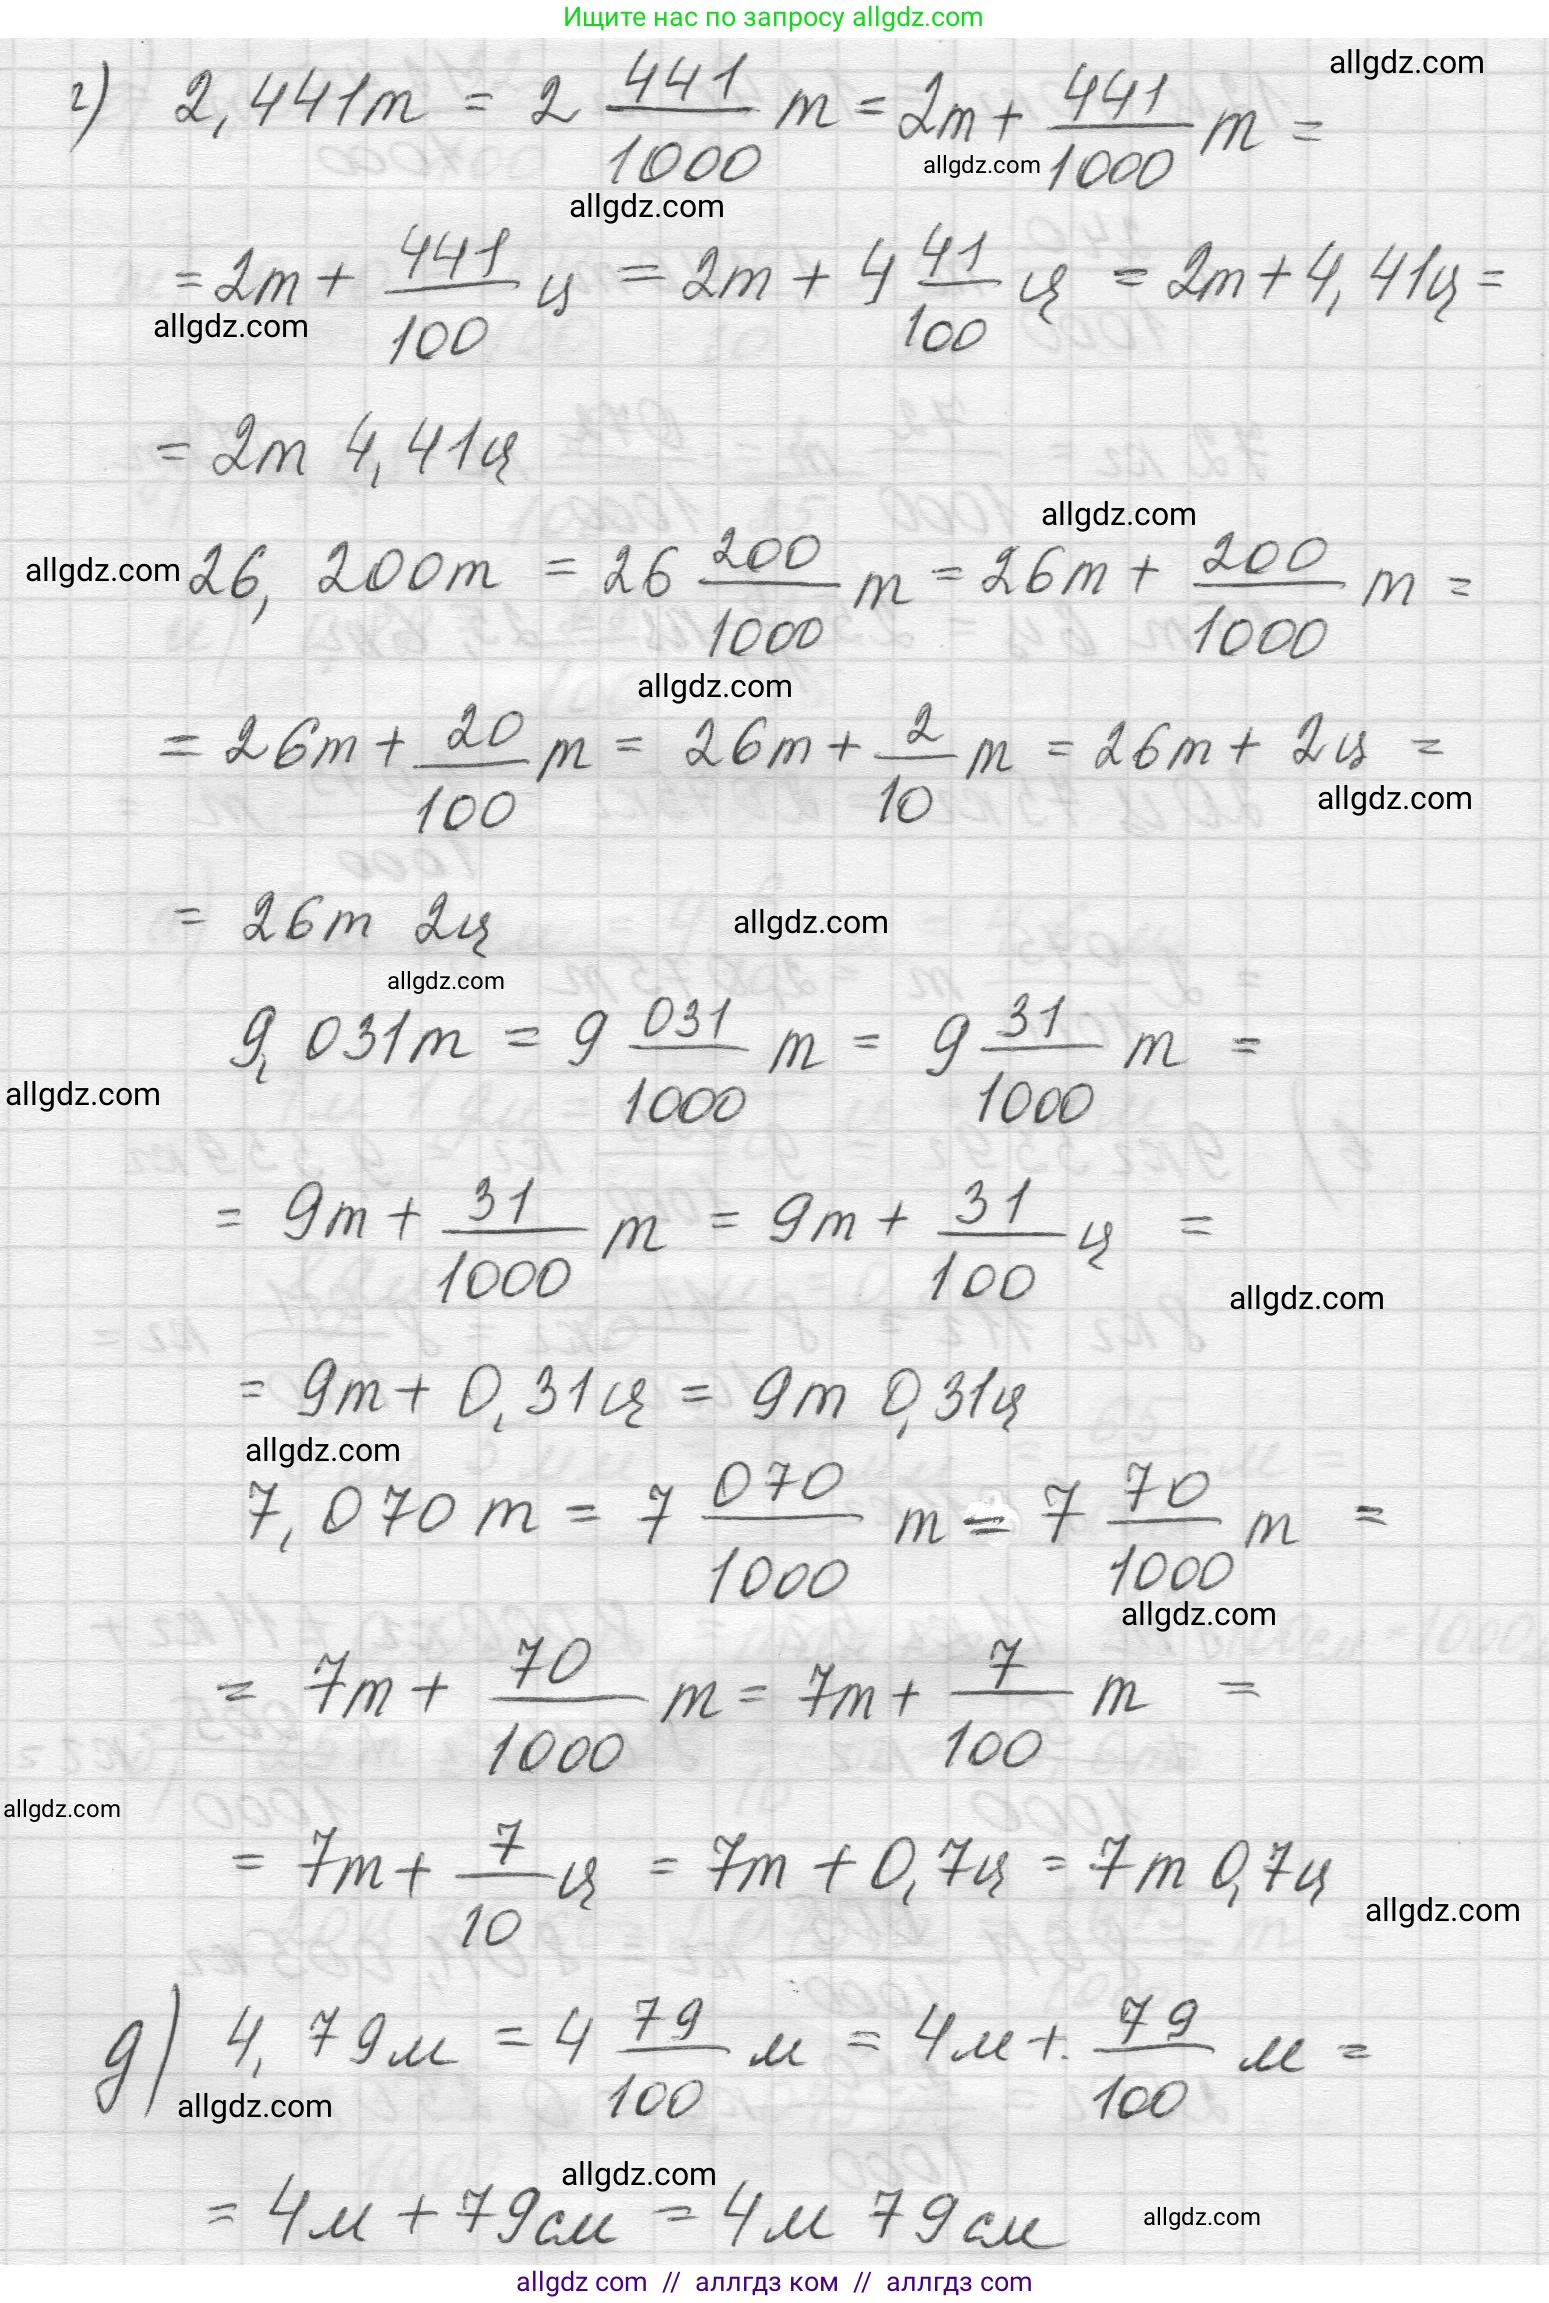 Ищите нас по запросу allgdz.com
allgdz.com
г) 2,441т = 2 441/1000 т = 2т + 441/1000 т =
allgdz.com
allgdz.com
= 2т + 441/100 ц = 2т + 4 41/100 ц = 2т + 4,41ц =
allgdz.com
= 2т 4,41ц
allgdz.com
allgdz.com 26,200т = 26 200/1000 т = 26т + 200/1000 т =
allgdz.com
= 26т + 20/100 т = 26т + 2/10 т = 26т + 2ц =
allgdz.com
= 26т 2ц
allgdz.com
allgdz.com
9,031т = 9 031/1000 т = 9 31/1000 т =
allgdz.com
= 9т + 31/1000 т = 9т + 31/100 ц =
allgdz.com
= 9т + 0,31ц = 9т 0,31ц
allgdz.com
7,070 т = 7 070/1000 т = 7 70/1000 т =
allgdz.com
= 7т + 70/1000 т = 7т + 7/100 т =
allgdz.com
= 7т + 7/10 ц = 7т + 0,7ц = 7т 0,7ц
allgdz.com
д) 4,79м = 4 79/100 м = 4м + 79/100 м =
allgdz.com
allgdz.com
= 4м + 79см = 4м 79см
allgdz.com
allgdz com // аллгдз ком // аллгдз com